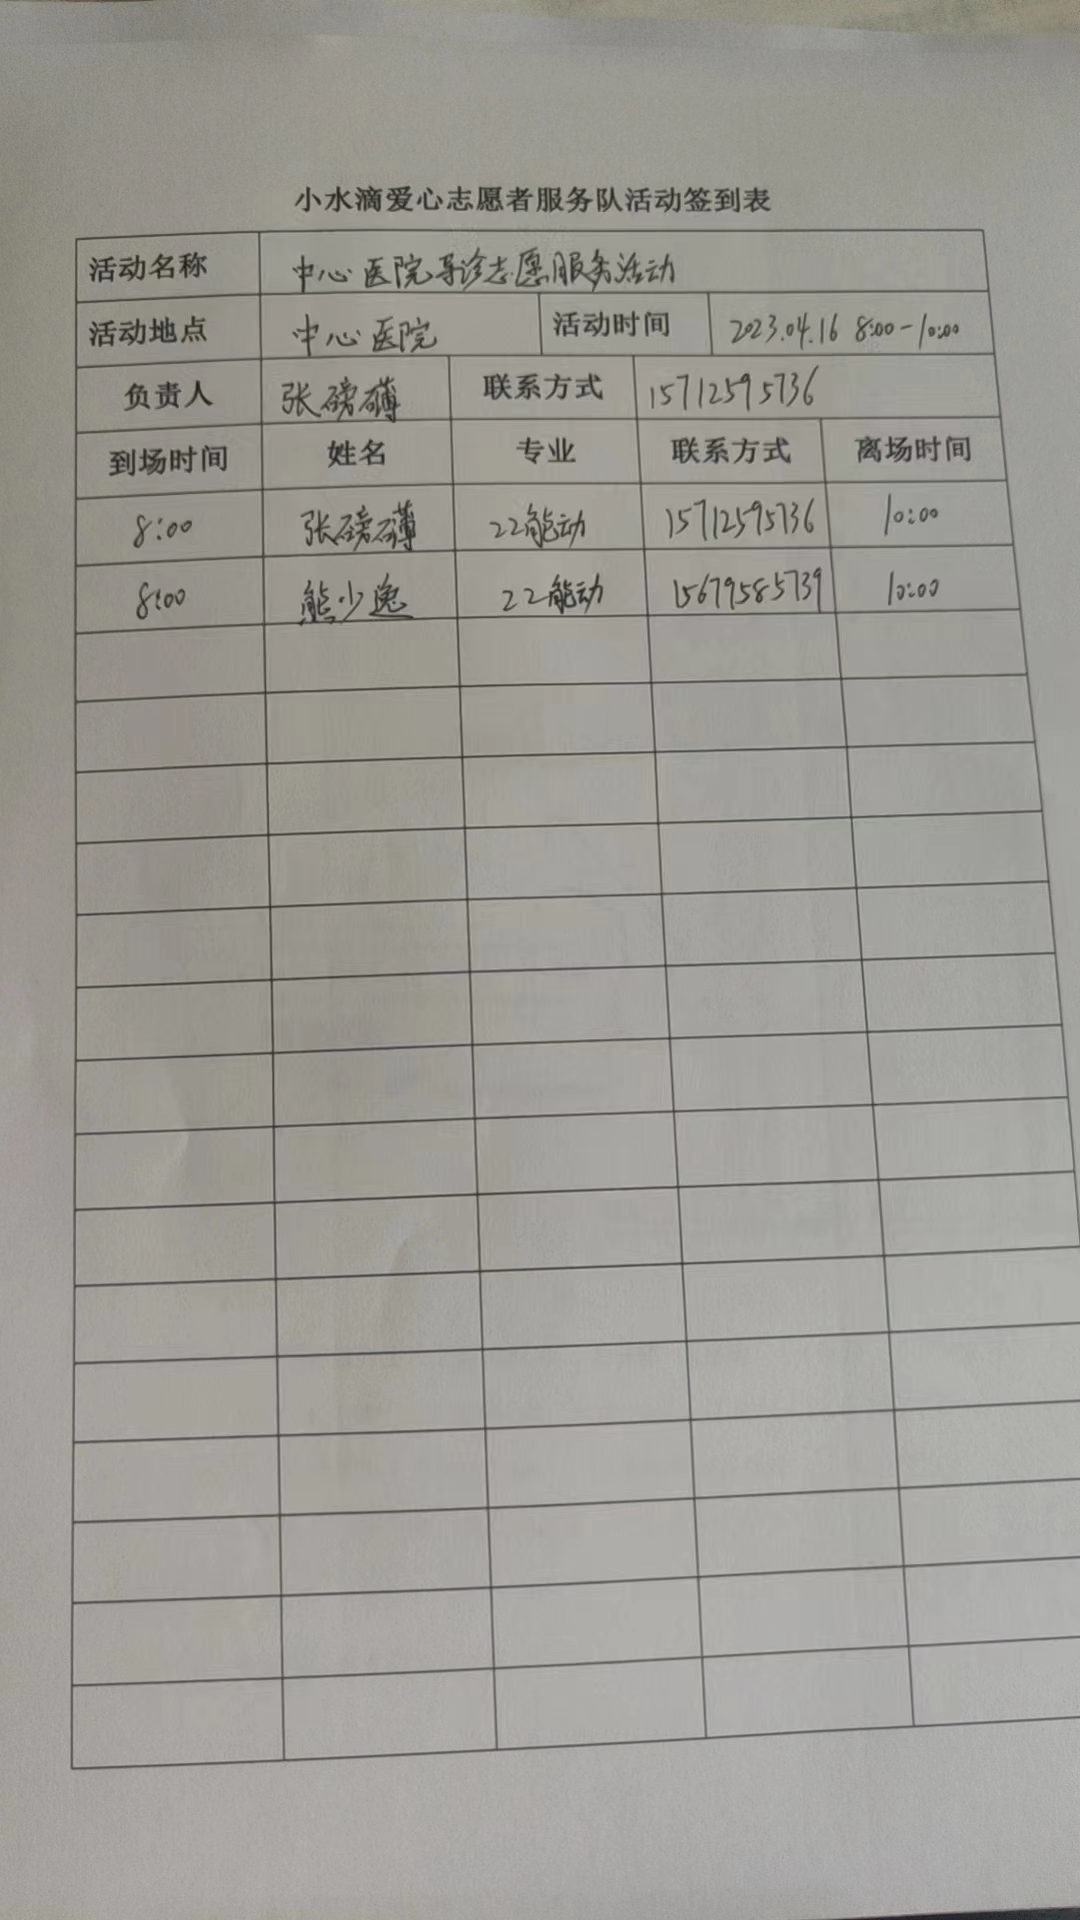 小水滴爱心志愿者服务队活动签到表
活动名称 中心医院导诊志愿服务活动
活动地点 中心医院 活动时间 2023.04.16 8:00-10:00
负责人 张磅礴 联系方式 15712595736
到场时间 姓名 专业 联系方式 离场时间
8:00 张磅礴 22能动 15712595736 10:00
8:00 熊少逸 22能动 15679585739 10:00